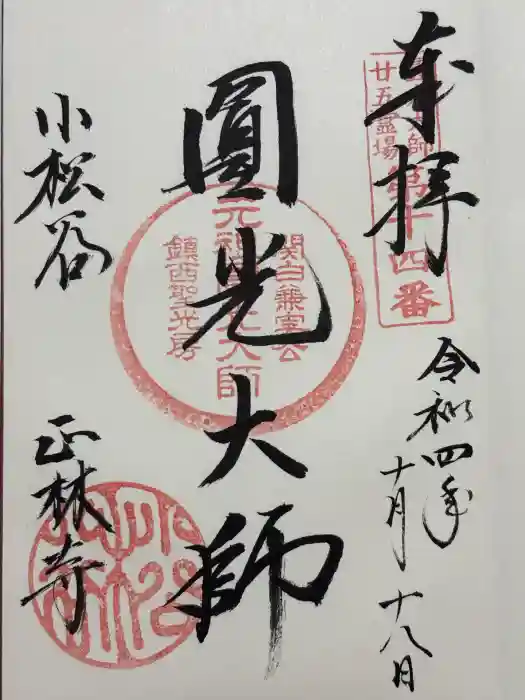 奉拝
圓光大師
廿五霊場
第十四番
令和四年
十月十八日
圓光大師
関白兼実公
元祖圓光大師
鎮西聖光房
小松谷
正林寺